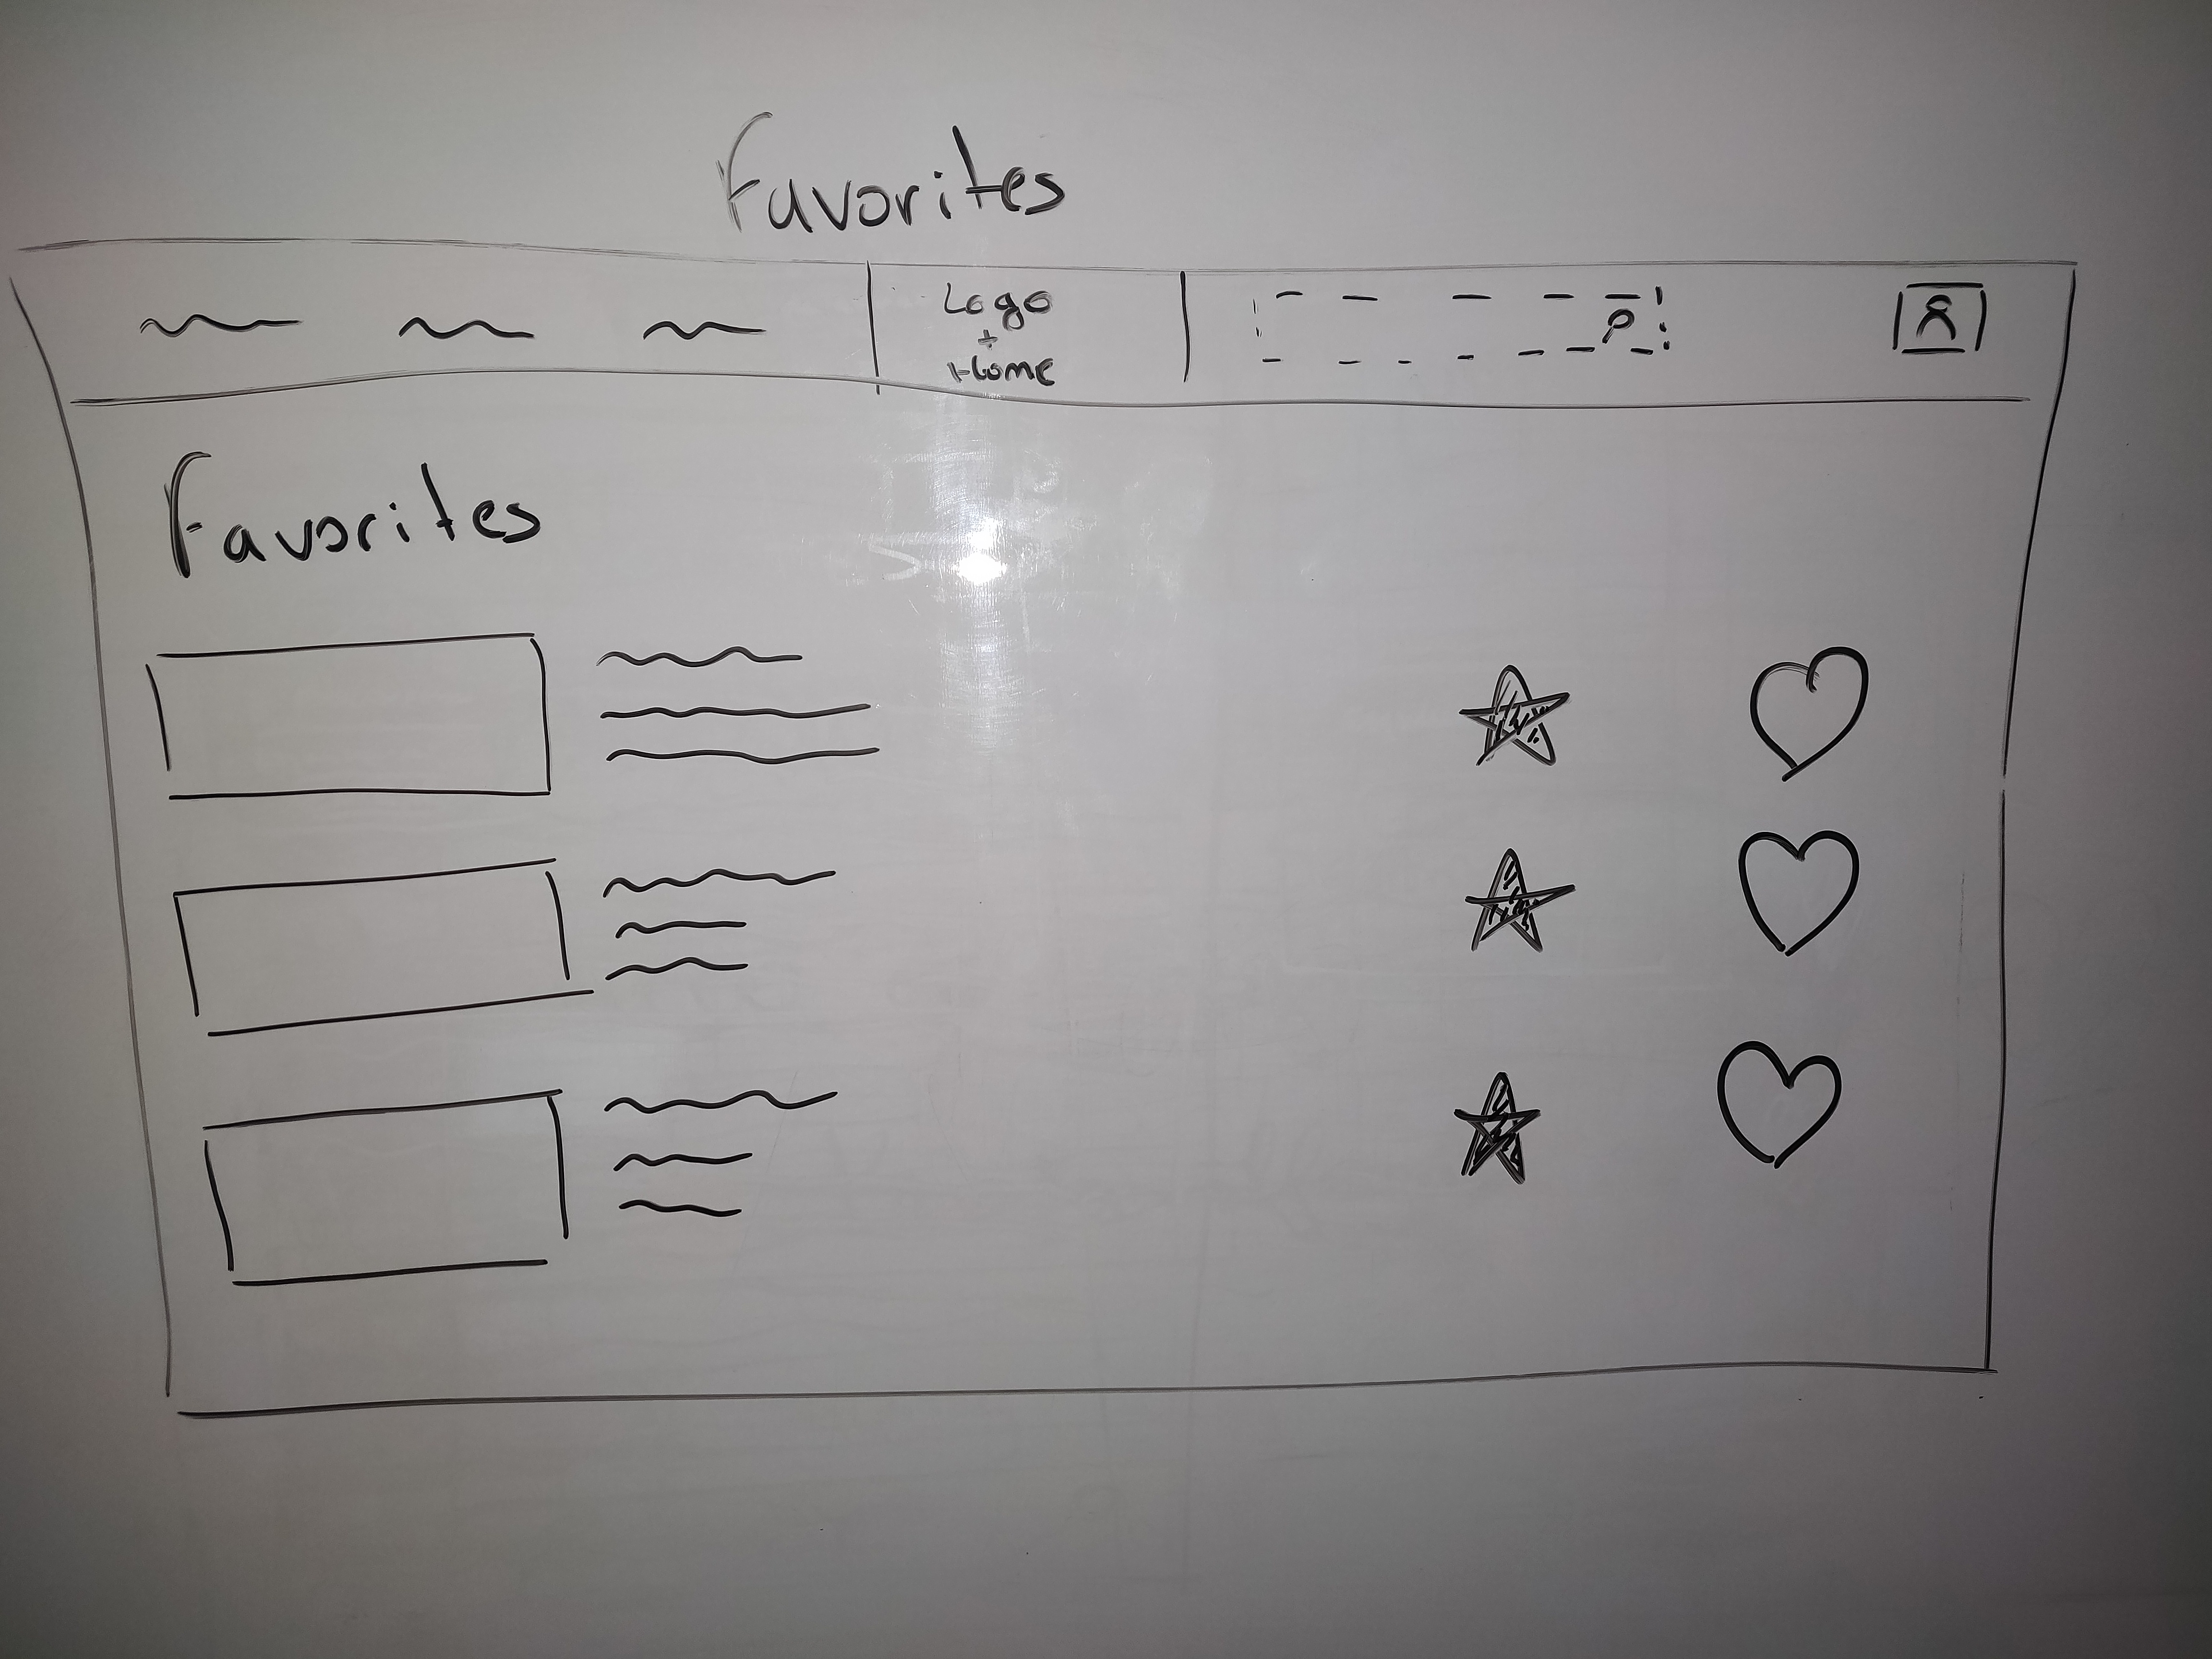 Favorites
Logo
+
Home
Favorites